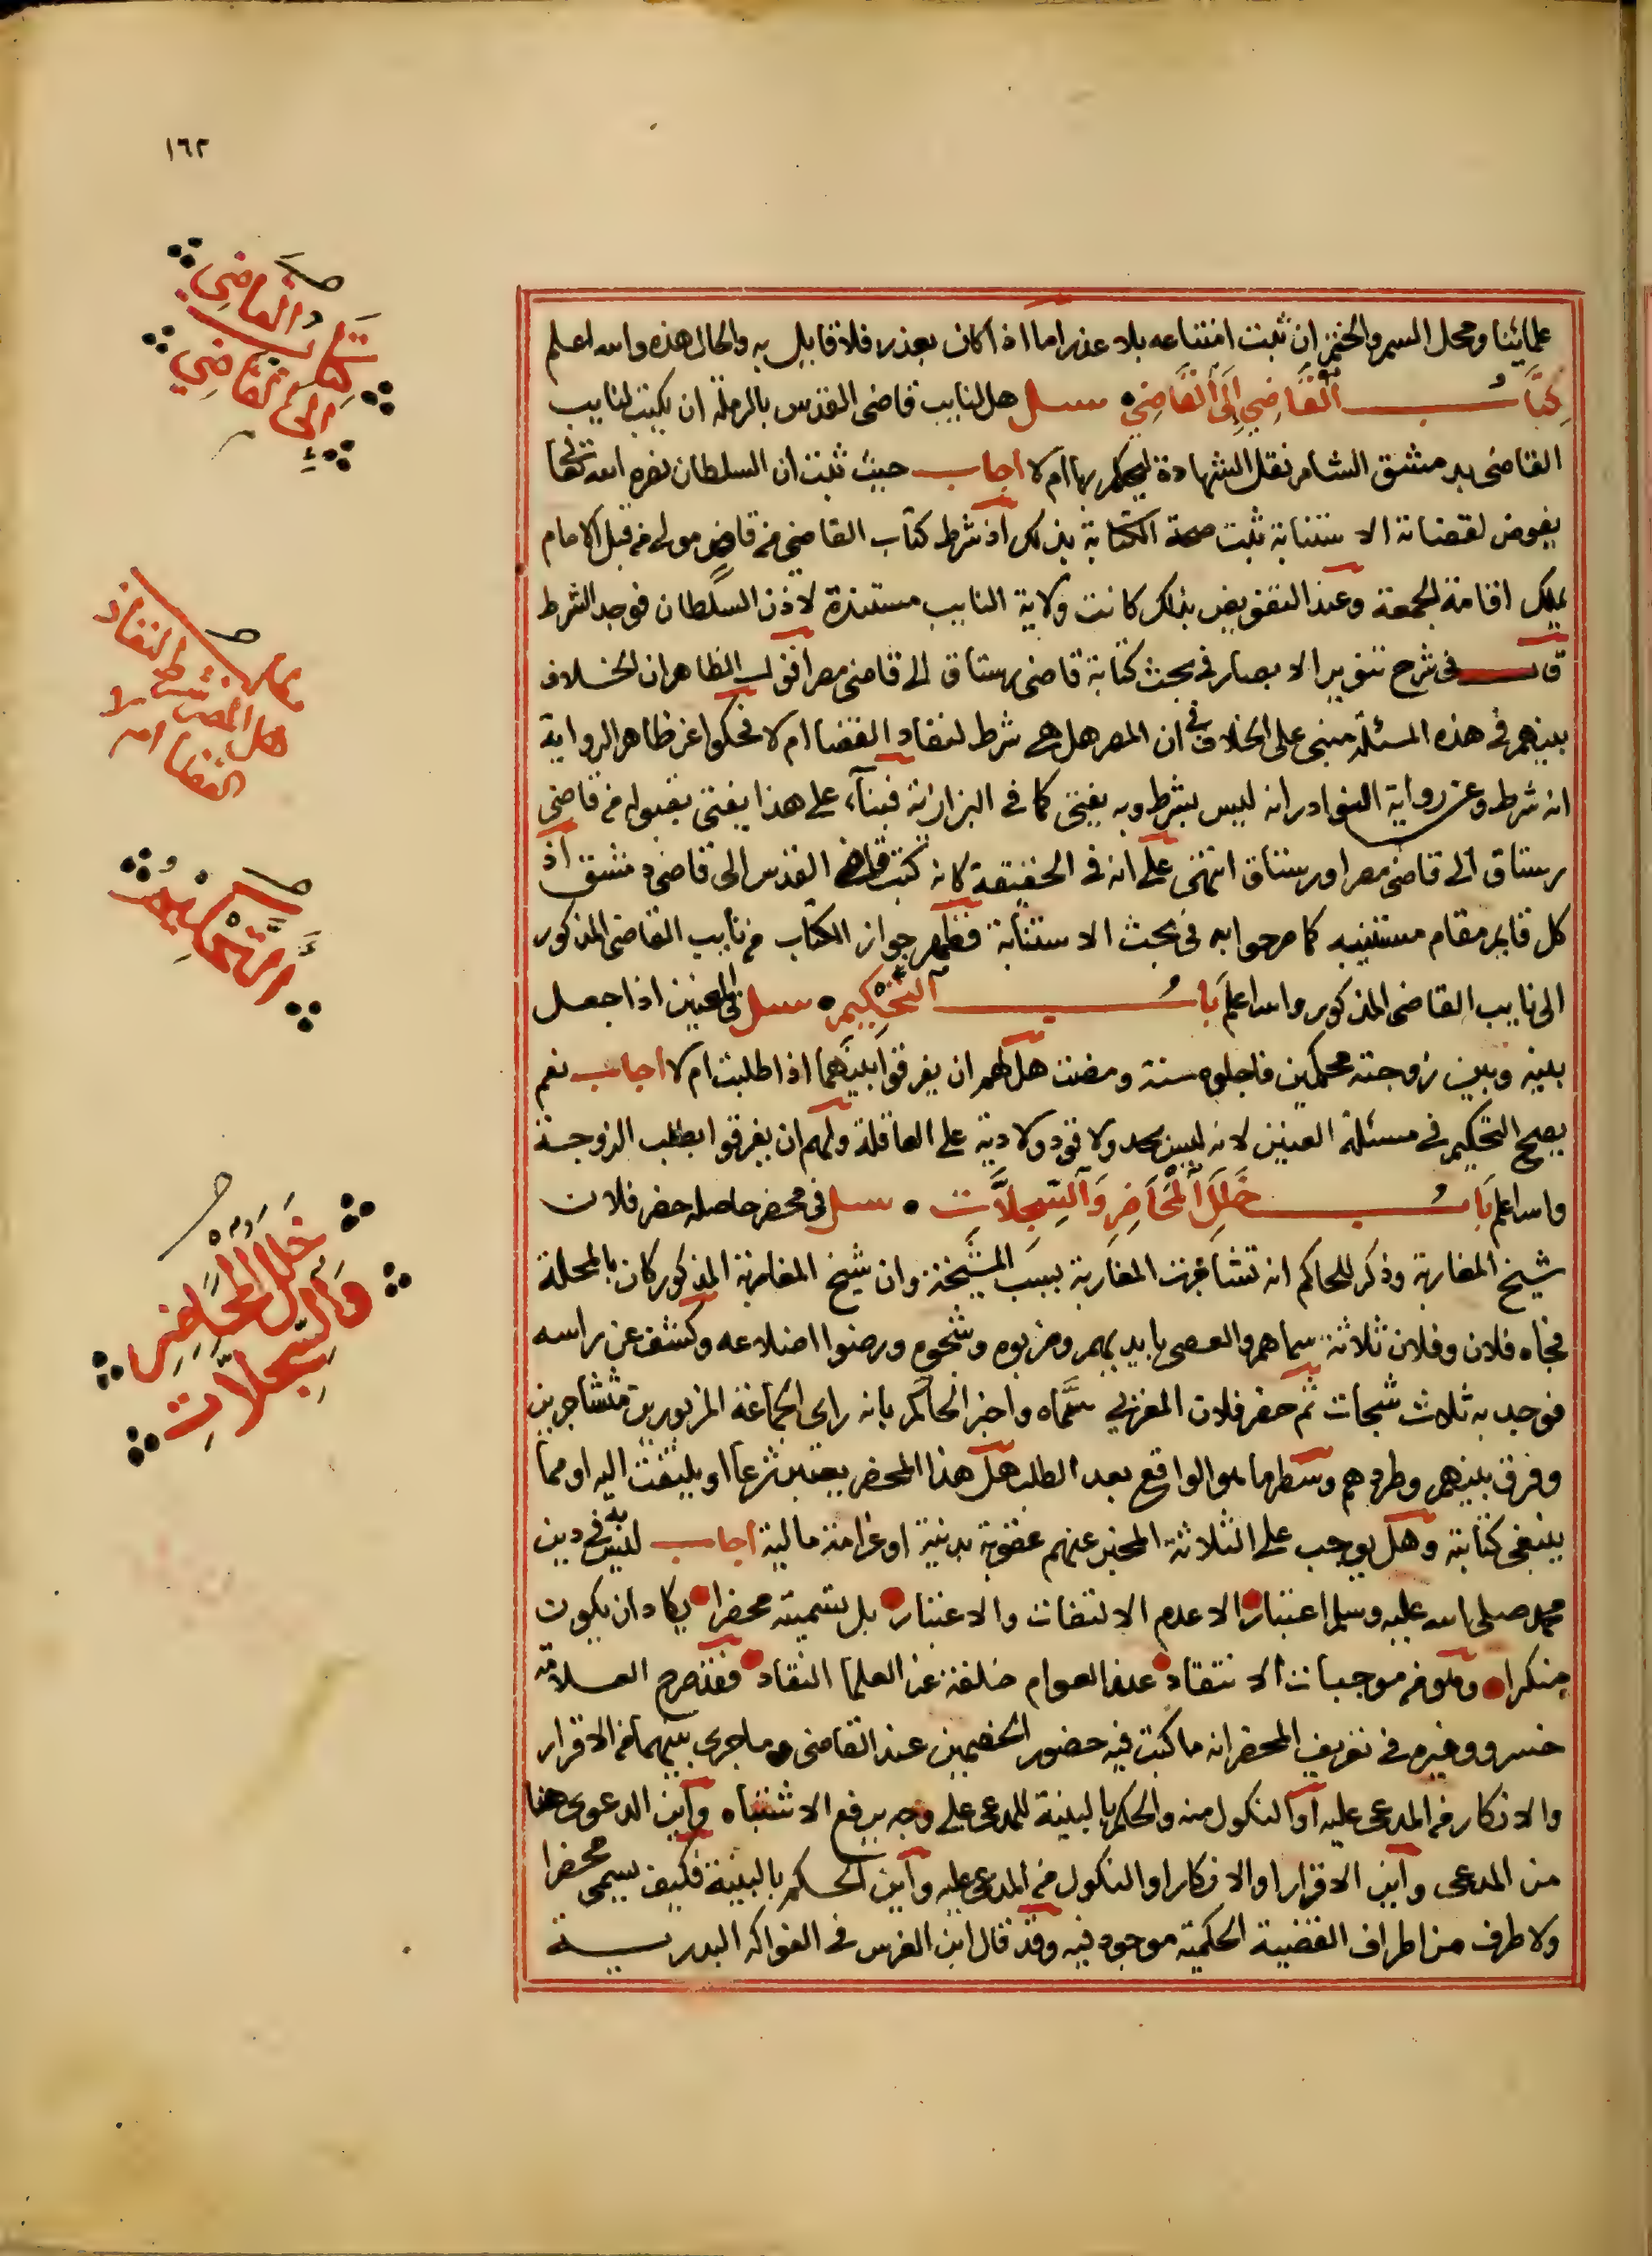 ١٦٢
علمائنا ومحل السمر والختم ان ثبت امتناعه بلا عذر اما اذا كان بعذر فلا قايل به والحال هذه والله اعلم
كتاب القاضي الى القاضي سئل هل لنايب قاضي القدس بالرملة ان يكتب لنايب
القاضي بدمشق الشام نقل الشهادة ليحكم بها ام لا اجاب حيث ثبت ان السلطان نصره الله تعالى
يفوض لقضاته الاستنابة ثبت صحة الكتابة بذلك اذ شرط كتاب القاضي من قاض مولى من قبل الامام
يملك اقامة الجمعة وعند التفويض بذلك كانت ولاية النايب مستندة لاذن السلطان فوجد الشرط
قال في شرح تنوير الابصار في بحث كتابة قاضي رستاق الى قاضي مصر اقول الظاهر ان الخلاف
بينهم في هذه المسئلة مبني على الخلاف في ان المصر هل هي شرط لنفاد القضا ام لا فحكوا عن ظاهر الرواية
انه شرط وعن رواية النوادر انه ليس بشرط وبه يفتى كما في البزازية فبناء على هذا يفتى بقبوله من قاضي
رستاق الى قاضي مصر او رستاق انتهى على انه في الحقيقة كانه كتب قاضي القدس الى قاضي دمشق اذ
كل قايم مقام مستنيبه كما صرحوا به في بحث الاستنابة فظهر جواز الكتاب من نايب القاضي المذكور
الى نايب القاضي المذكور والله اعلم باب التحكيم سئل في العنين اذا جعل
بينه وبين زوجته محكمين فاجلوه سنة ومضت هل لهم ان يفرقوا بينهما اذا طلبت ام لا اجاب نعم
يصح التحكيم في مسئلة العنين لانه ليس بحد ولا قود ولا دية على العاقلة ولهم ان يفرقوا بطلب الزوجة
والله اعلم باب خلل المحاضر والسجلات سئل في محضر حاصله حضر فلان
شيخ المغاربة وذكر للحاكم انه تشاجرت المغاربة بسبب المشيخة وان شيخ المغاربة المذكور كان بالمحلة
فجاه فلان وفلان ثلاثة سماهم والعصي بايديهم وضربوه وشجوه ورضوا اضلاعه وكشف عن راسه
فوجد به ثلاث شجات ثم حضر فلان المغربي سماه واخبر الحاكم بانه راى الجماعة المزبورين متشاجرين
وفرق بينهم وطردهم وسطرها هو الواقع بعد الطلب هل هذا المحضر يعتبر شرعا او يلتفت اليه او مما
ينبغي كتابته وهل يوجب على الثلاثة المخبر عنهم عقوبة بدنية او غرامة مالية اجاب ليس في دين
محمد صلى الله عليه وسلم اعتباره الا عدم الالتفات والاعتبار بل تسميته محضرا يكاد ان يكون
منكرا وهو من موجبات الانتقاد عند العوام خلفة عن العلما النقاد فقد صرح العلامة
خسرو وغيره في تعريف المحضر انه ما كتب فيه حضور الخصمين عند القاضي وما جرى بينهما من الاقرار
والانكار من المدعى عليه او النكول منه والحكم بالبينة للمدعي على وجه يرفع الاشتباه واين الدعوى هنا
من المدعي واين الاقرار او الانكار او النكول من المدعى عليه واين الحكم بالبينة فكيف يسمى محضرا
ولا طرف من اطراف القضية الحكمية موجود فيه وقد قال ابن الغرس في الفواكه البدرية
كتاب القاضي
الى القاضي
مطلب
هل المصر شرط لنفاذ
القضا ام لا
التحكيم
خلل المحاضر
والسجلات